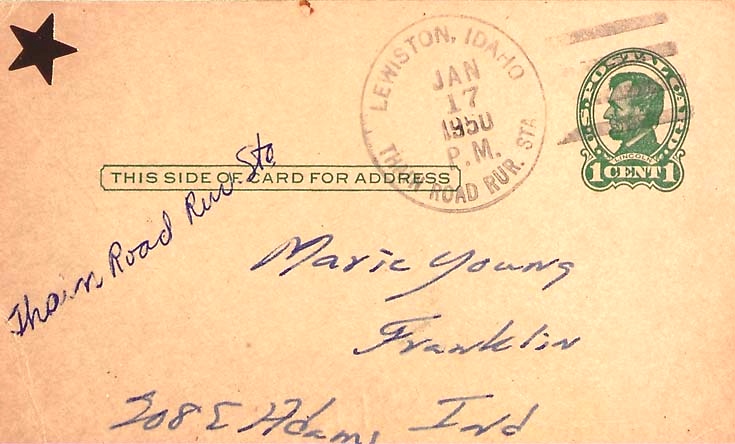 LEWISTON, IDAHO
JAN
17
1950
P.M.
THAIN ROAD RUR. STA.
U.S. POSTAL CARD
LINCOLN
1 CENT 1
THIS SIDE OF CARD FOR ADDRESS
Thain Road Rur. Sta
Marie Young
Franklin
208 E Adams Ind